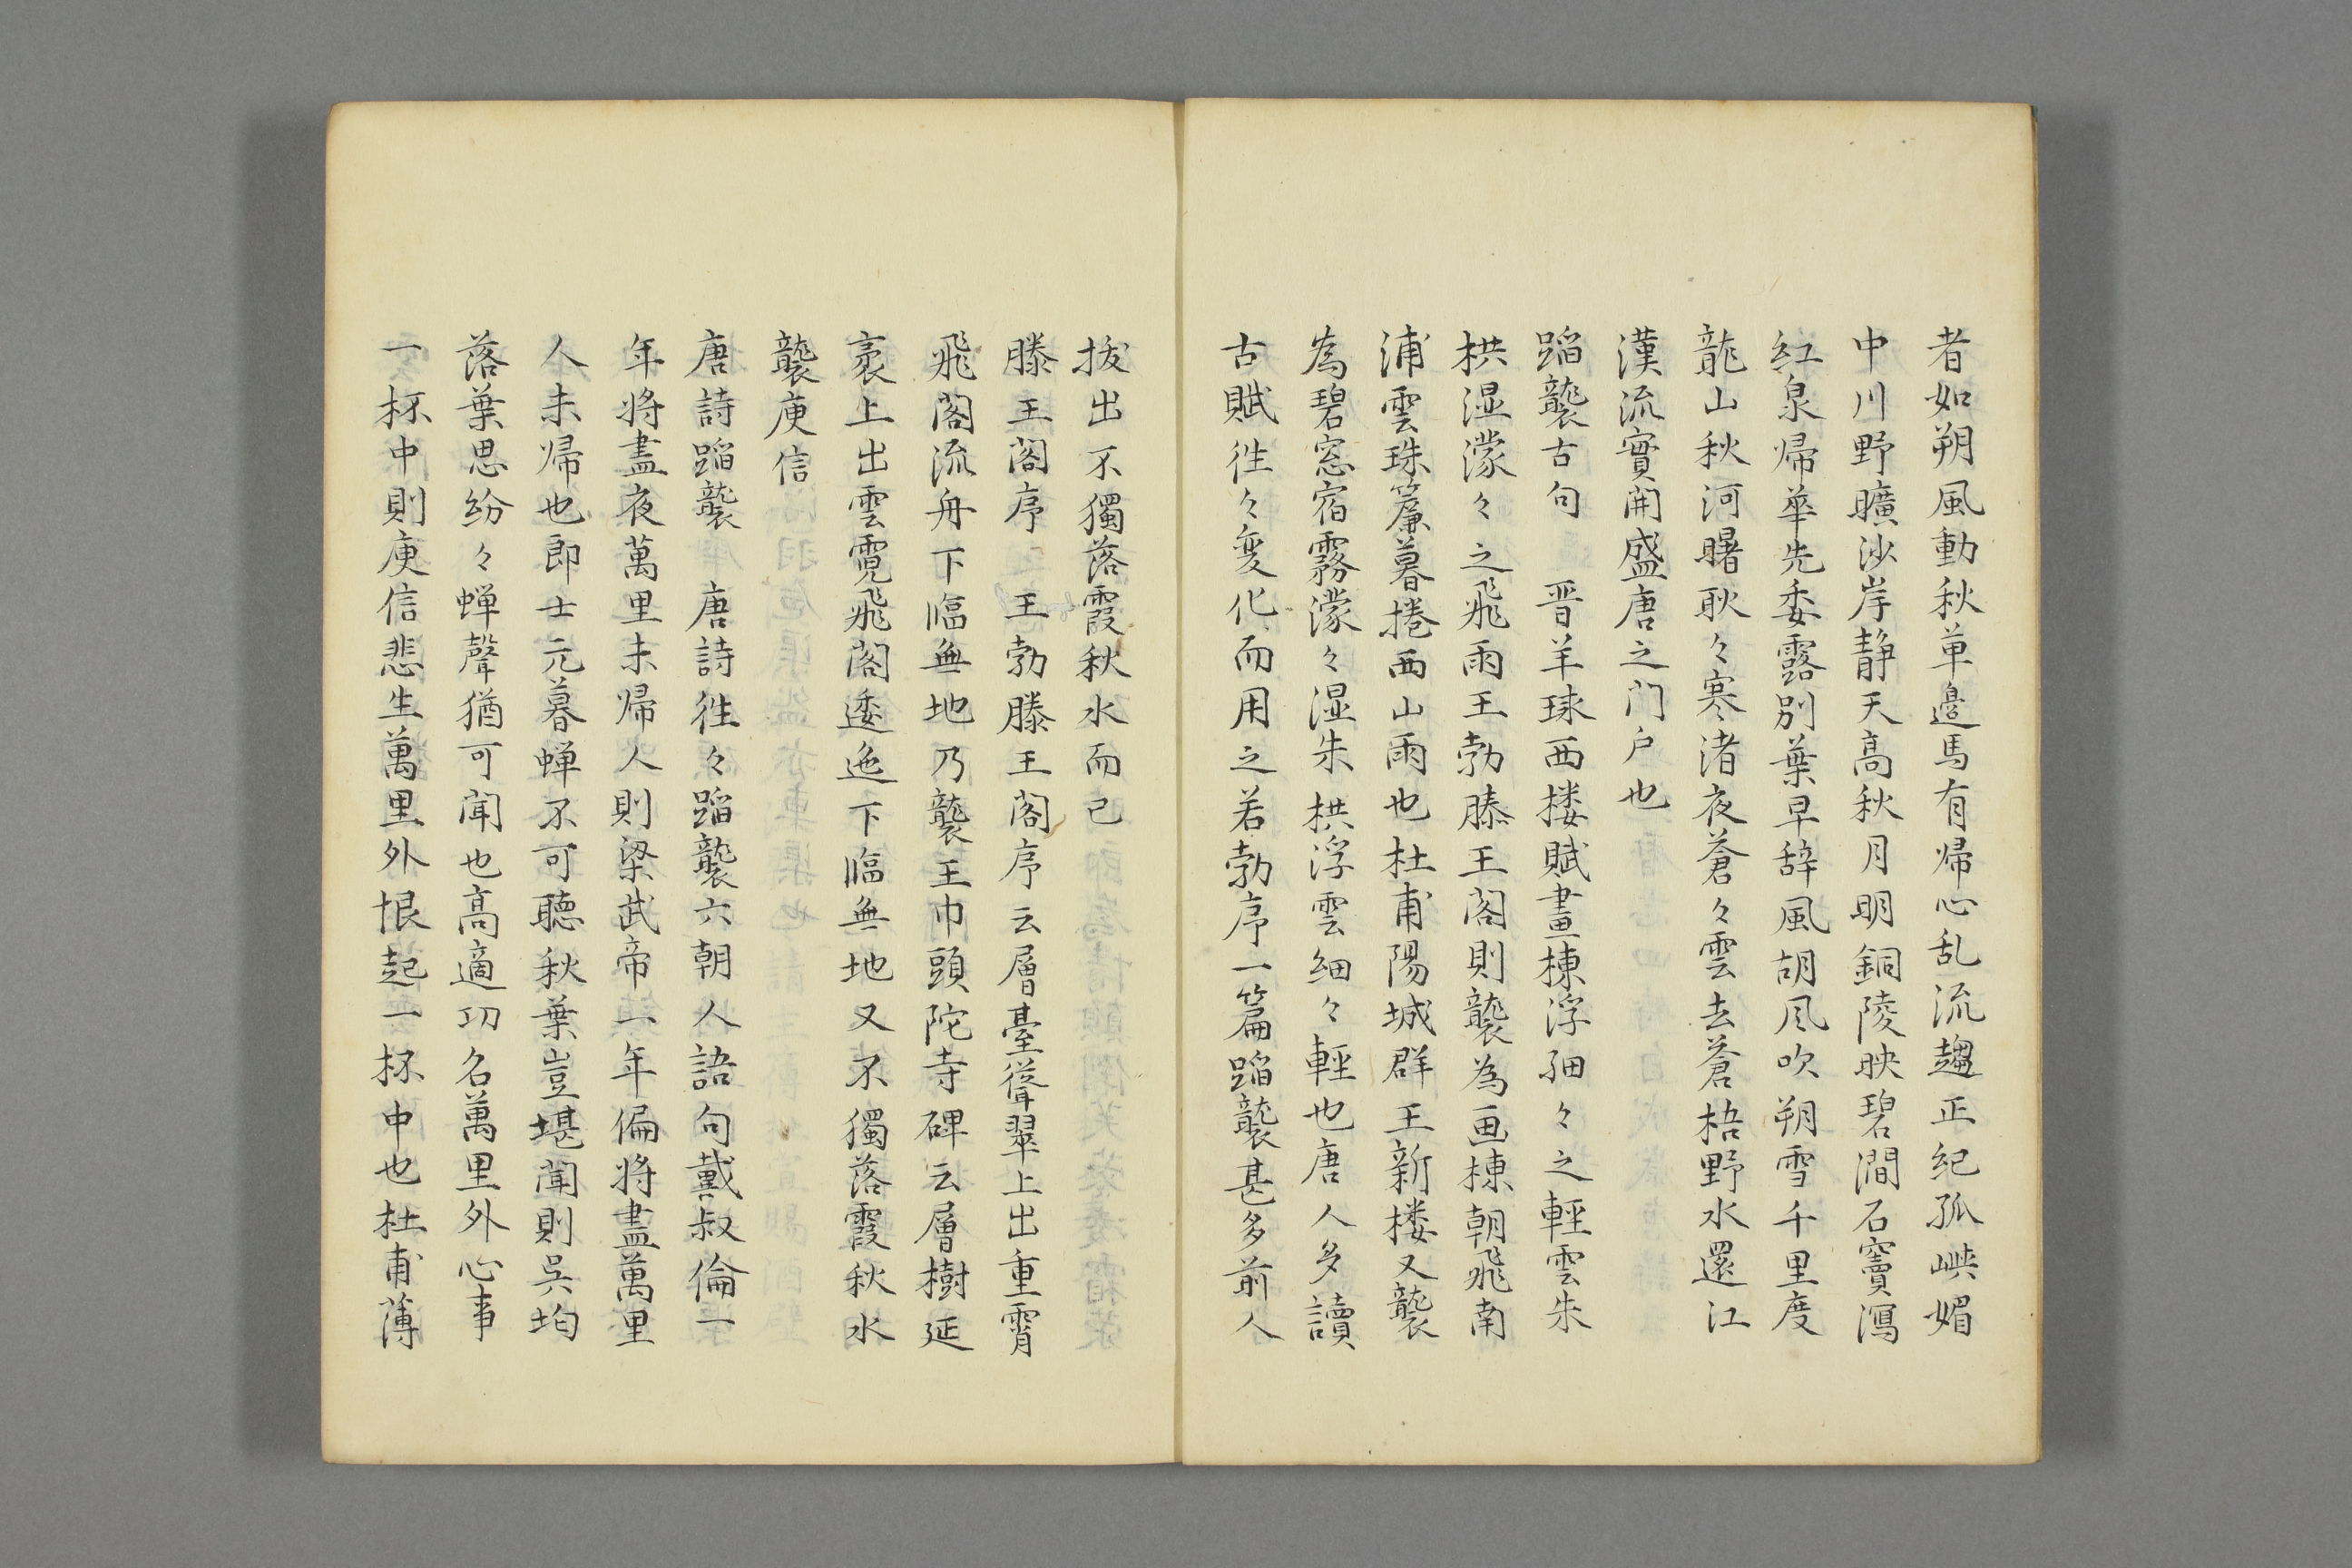 者如朔風動秋草邊馬有帰心乱流趨正紀孤嶼媚
中川野曠沙岸静天高秋月明銅陵映碧澗石竇瀉
紅泉帰華先委露別葉早辞風胡风吹朔雪千里度
龍山秋河曙耿々寒渚夜蒼々雲去蒼梧野水還江
漢流實開盛唐之门户也
蹈襲古句　晋羊球西楼賦畫棟浮細々之輕雲朱
栱湿濛々之飛雨王勃滕王閣則襲為画棟朝飛南
浦雲珠簾暮捲西山雨也杜甫陽城群王新楼又襲
為碧窓宿霧濛々湿朱栱浮雲細々輕也唐人多讀
古賦徃々変化而用之若勃序一篇蹈襲甚多前人
拔出不獨落霞秋水而已
滕王閣序　王勃滕王閣序云層臺聳翠上出重霄
飛閣流舟下臨無地乃襲王巾頭陀寺碑云層樹延
袤上出雲霓飛閣逶迤下臨無地又不獨落霞秋水
襲庾信
唐詩蹈襲　唐詩徃々蹈襲六朝人語句戴叔倫一
年将盡夜萬里未帰人則梁武帝一年偏将盡萬里
人未帰也郎士元暮蝉不可聽秋葉豈堪聞則吳均
落葉思紛々蝉聲猶可聞也高適功名萬里外心事
一杯中則庾信悲生萬里外恨起一杯中也杜甫薄